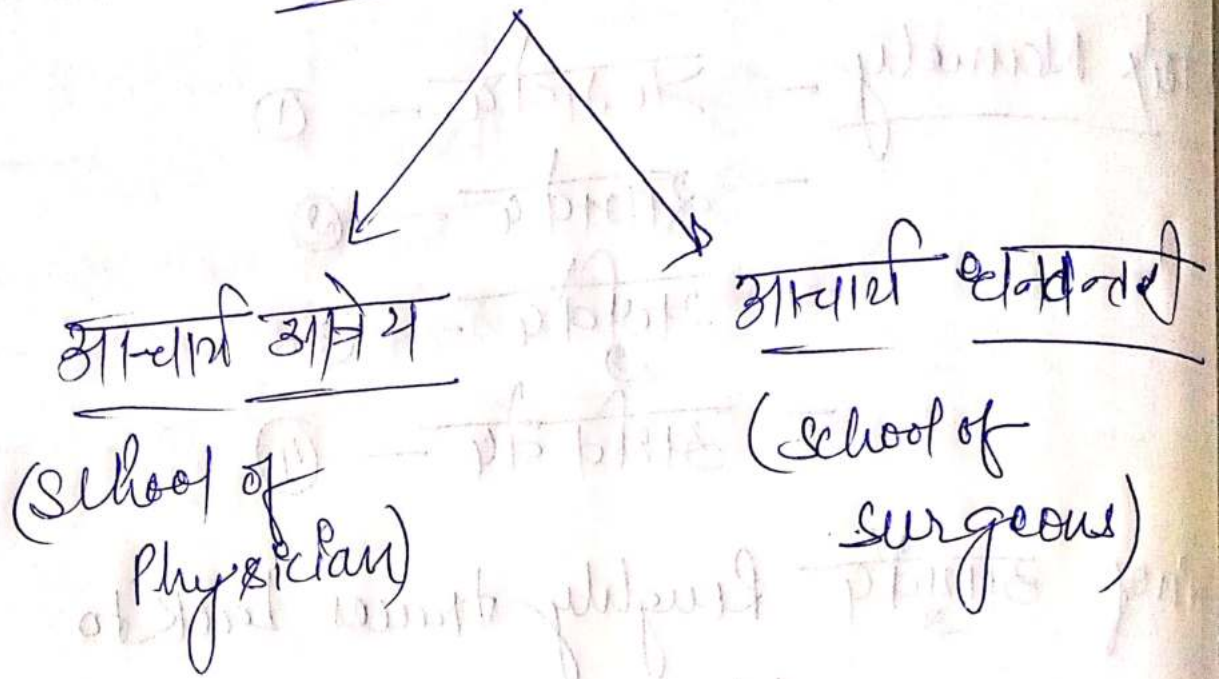 आचार्य आत्रेय
(school of
Physician)
आचार्य धनवन्तरी
(school of
surgeons)